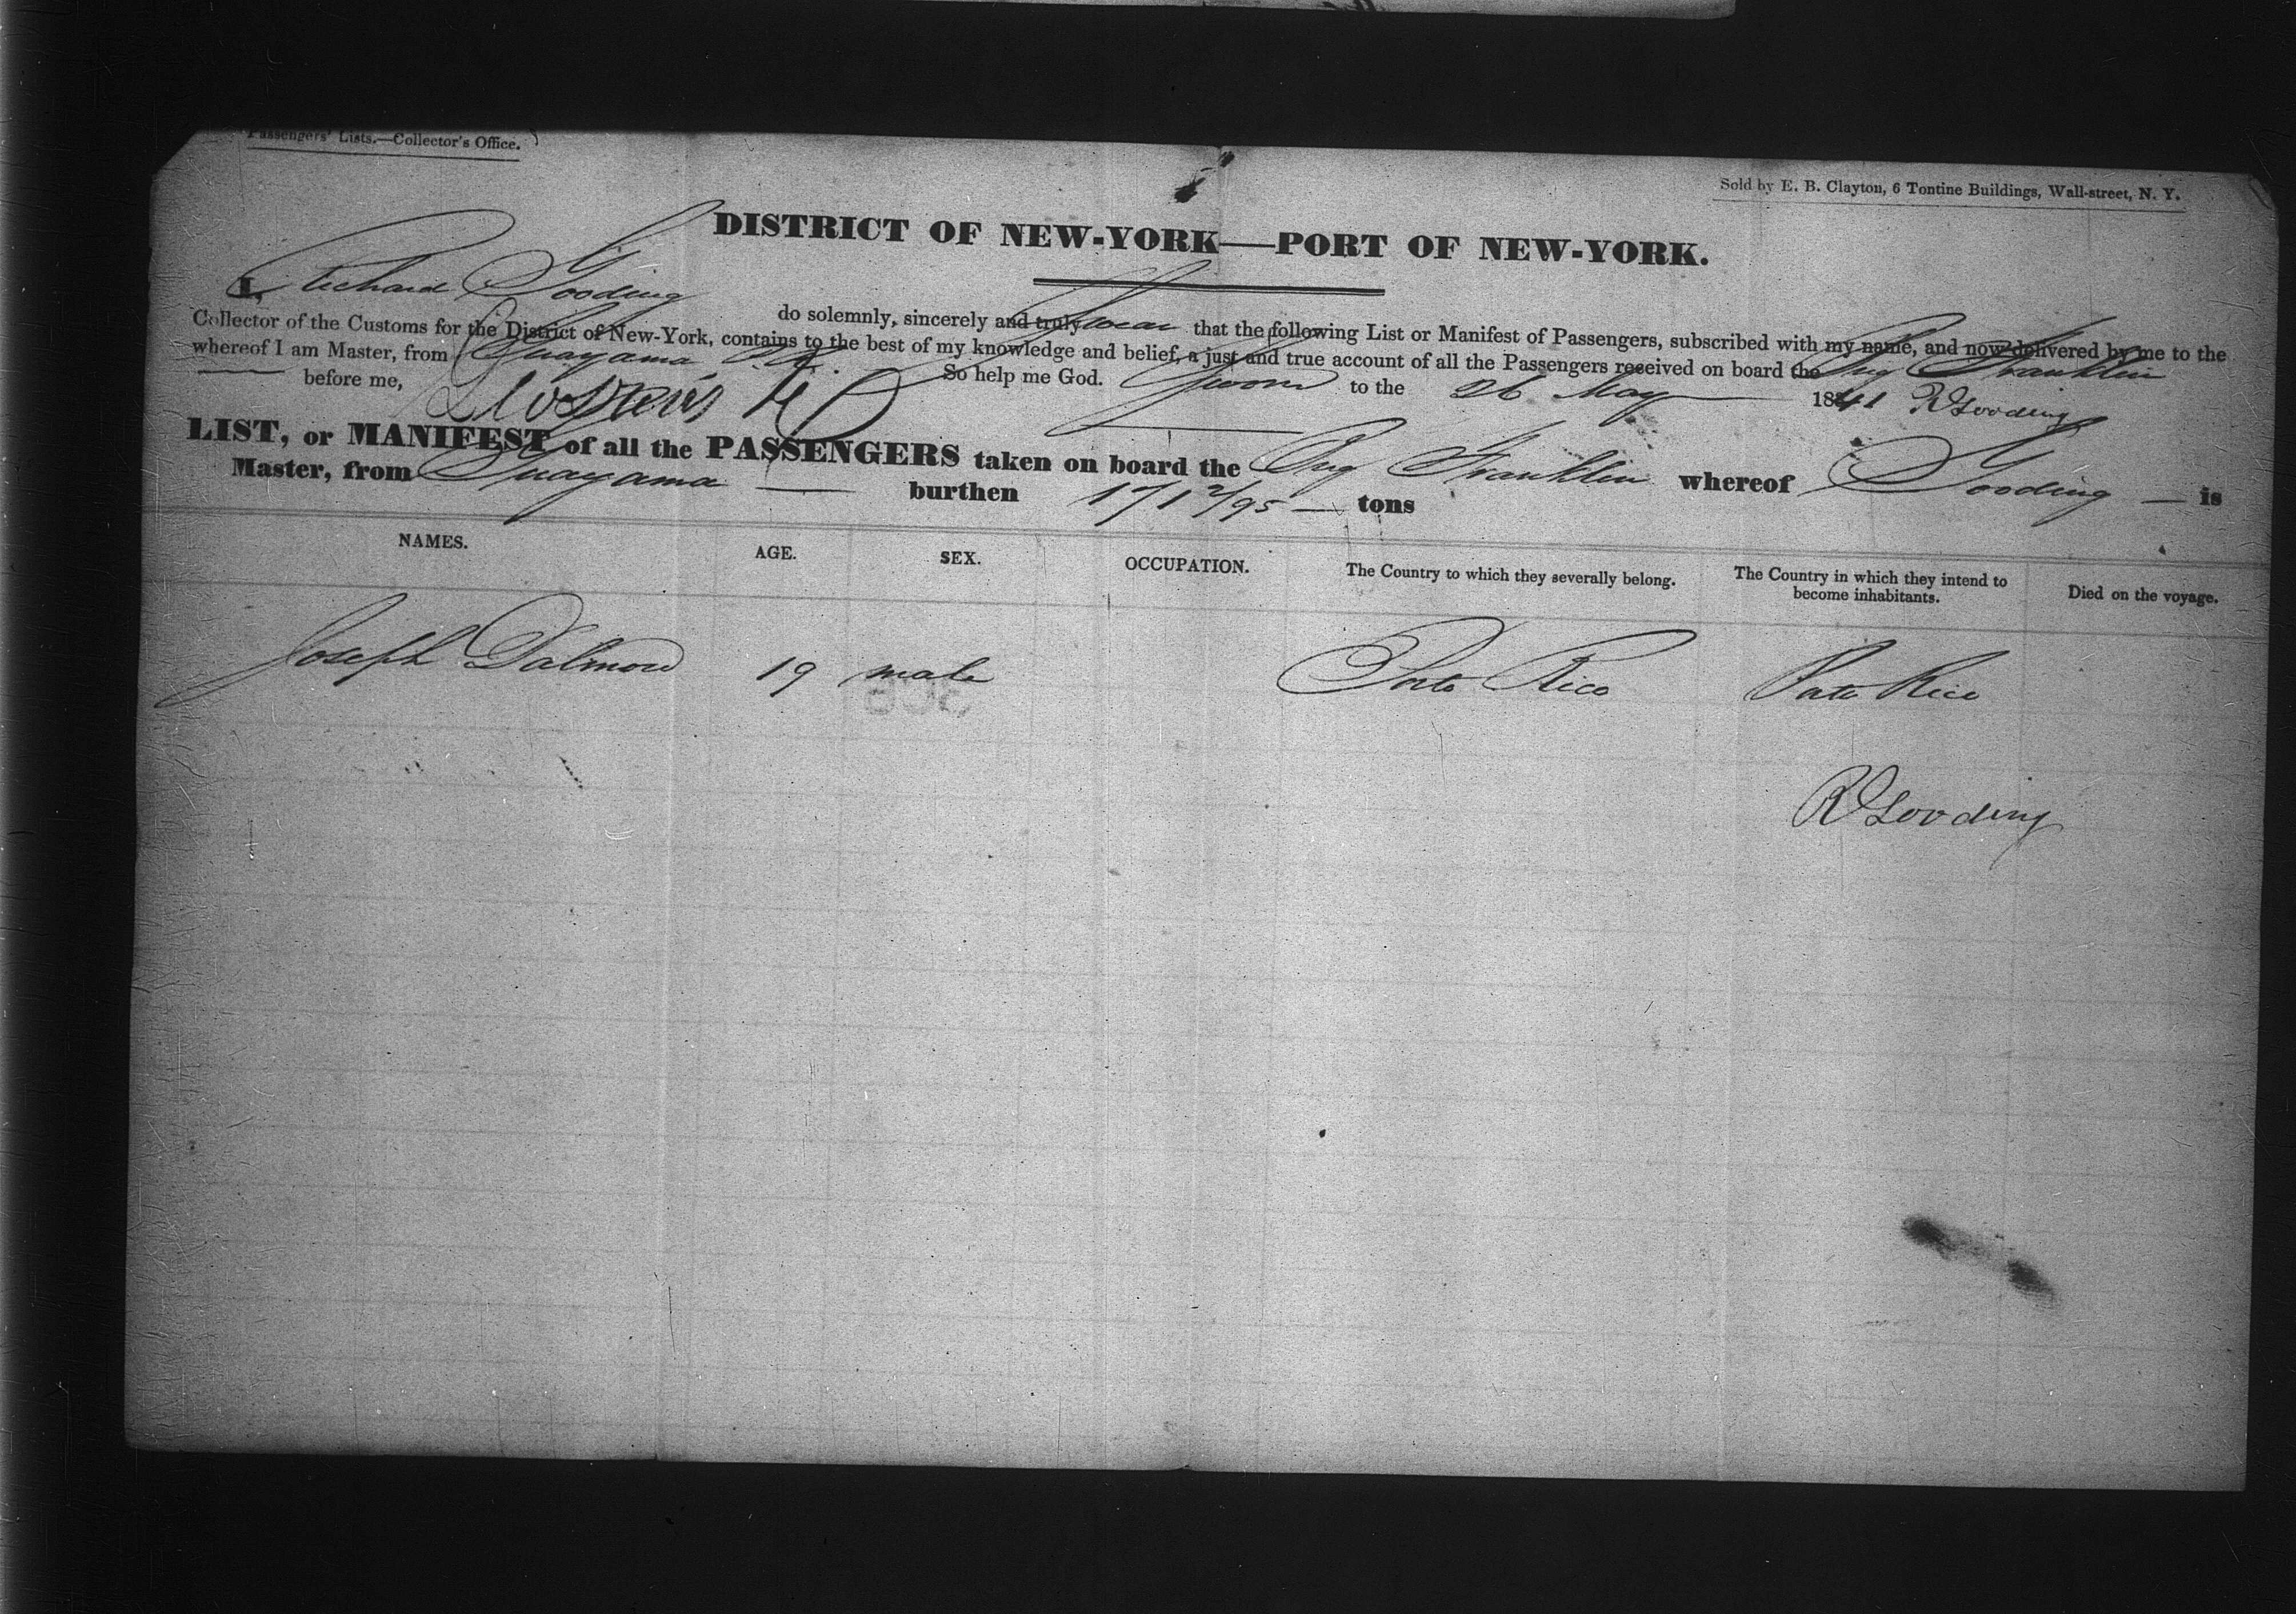 Passengers' Lists.—Collector's Office.
Sold by E. B. Clayton, 6 Tontine Buildings, Wall-street, N. Y.
DISTRICT OF NEW-YORK—PORT OF NEW-YORK.
I, Richard Gooding do solemnly, sincerely and truly swear that the following List or Manifest of Passengers, subscribed with my name, and now delivered by me to the
Collector of the Customs for the District of New-York, contains to the best of my knowledge and belief, a just and true account of all the Passengers received on board the Brig Franklin
whereof I am Master, from Guayama P.R. So help me God. Sworn to the 26 May 1841 R Gooding
before me,
LIST, or MANIFEST of all the PASSENGERS taken on board the Brig Franklin whereof Gooding is
Master, from Guayama burthen 171 2/95 tons
NAMES. AGE. SEX. OCCUPATION. The Country to which they severally belong. The Country in which they intend to become inhabitants. Died on the voyage.
Joseph Dalmow 19 male Porto Rico Porto Rico
R Gooding